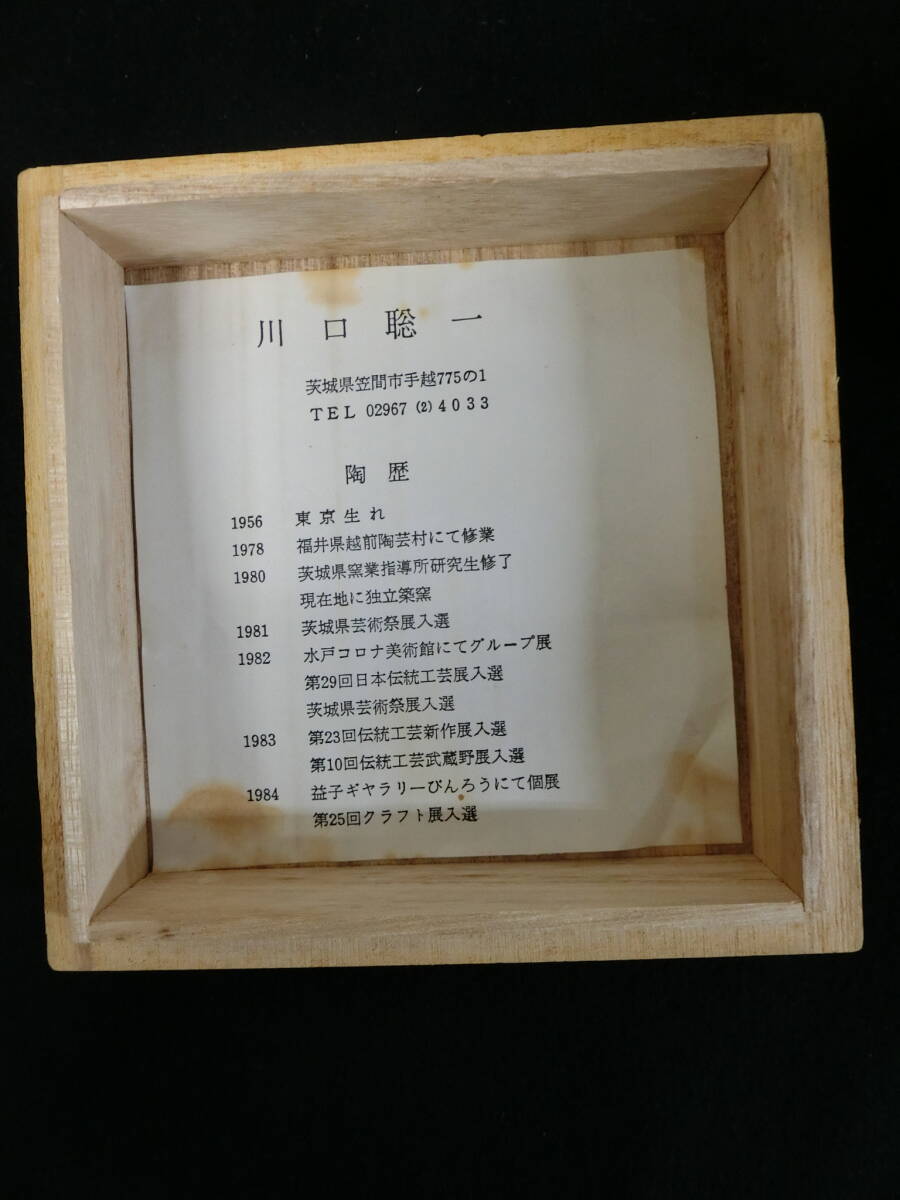 川口聡一
茨城県笠間市手越775の1
TEL 02967 (2) 4033
陶歴
1956 東京生れ
1978 福井県越前陶芸村にて修業
1980 茨城県窯業指導所研究生修了
現在地に独立築窯
1981 茨城県芸術祭展入選
1982 水戸コロナ美術館にてグループ展
第29回日本伝統工芸展入選
茨城県芸術祭展入選
1983 第23回伝統工芸新作展入選
第10回伝統工芸武蔵野展入選
1984 益子ギャラリーびんろうにて個展
第25回クラフト展入選